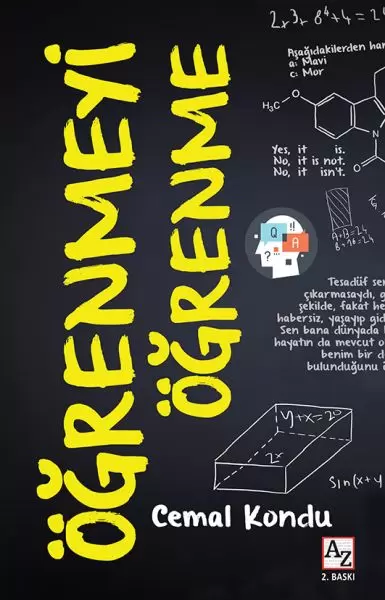 2x+3x 8⁴+4=2
Aşağıdakilerden har
a: Mavi
c: Mor
H₃C
O
N
O
Yes, it is.
No, it is not.
No, it isn't.
A+B=24
B-16=24
Q
A
!!
?
ÖĞRENMEYİ
ÖĞRENME
Tesadüf sen
çıkarmasaydı, g
şekilde, fakat he
habersiz, yaşayıp gid
Sen bana dünyada b
hayatın da mevcut o
benim bir d
bulunduğunu
y+x=20
2x
Sin(x+y
Cemal Kondu
AZ
2. BASKI